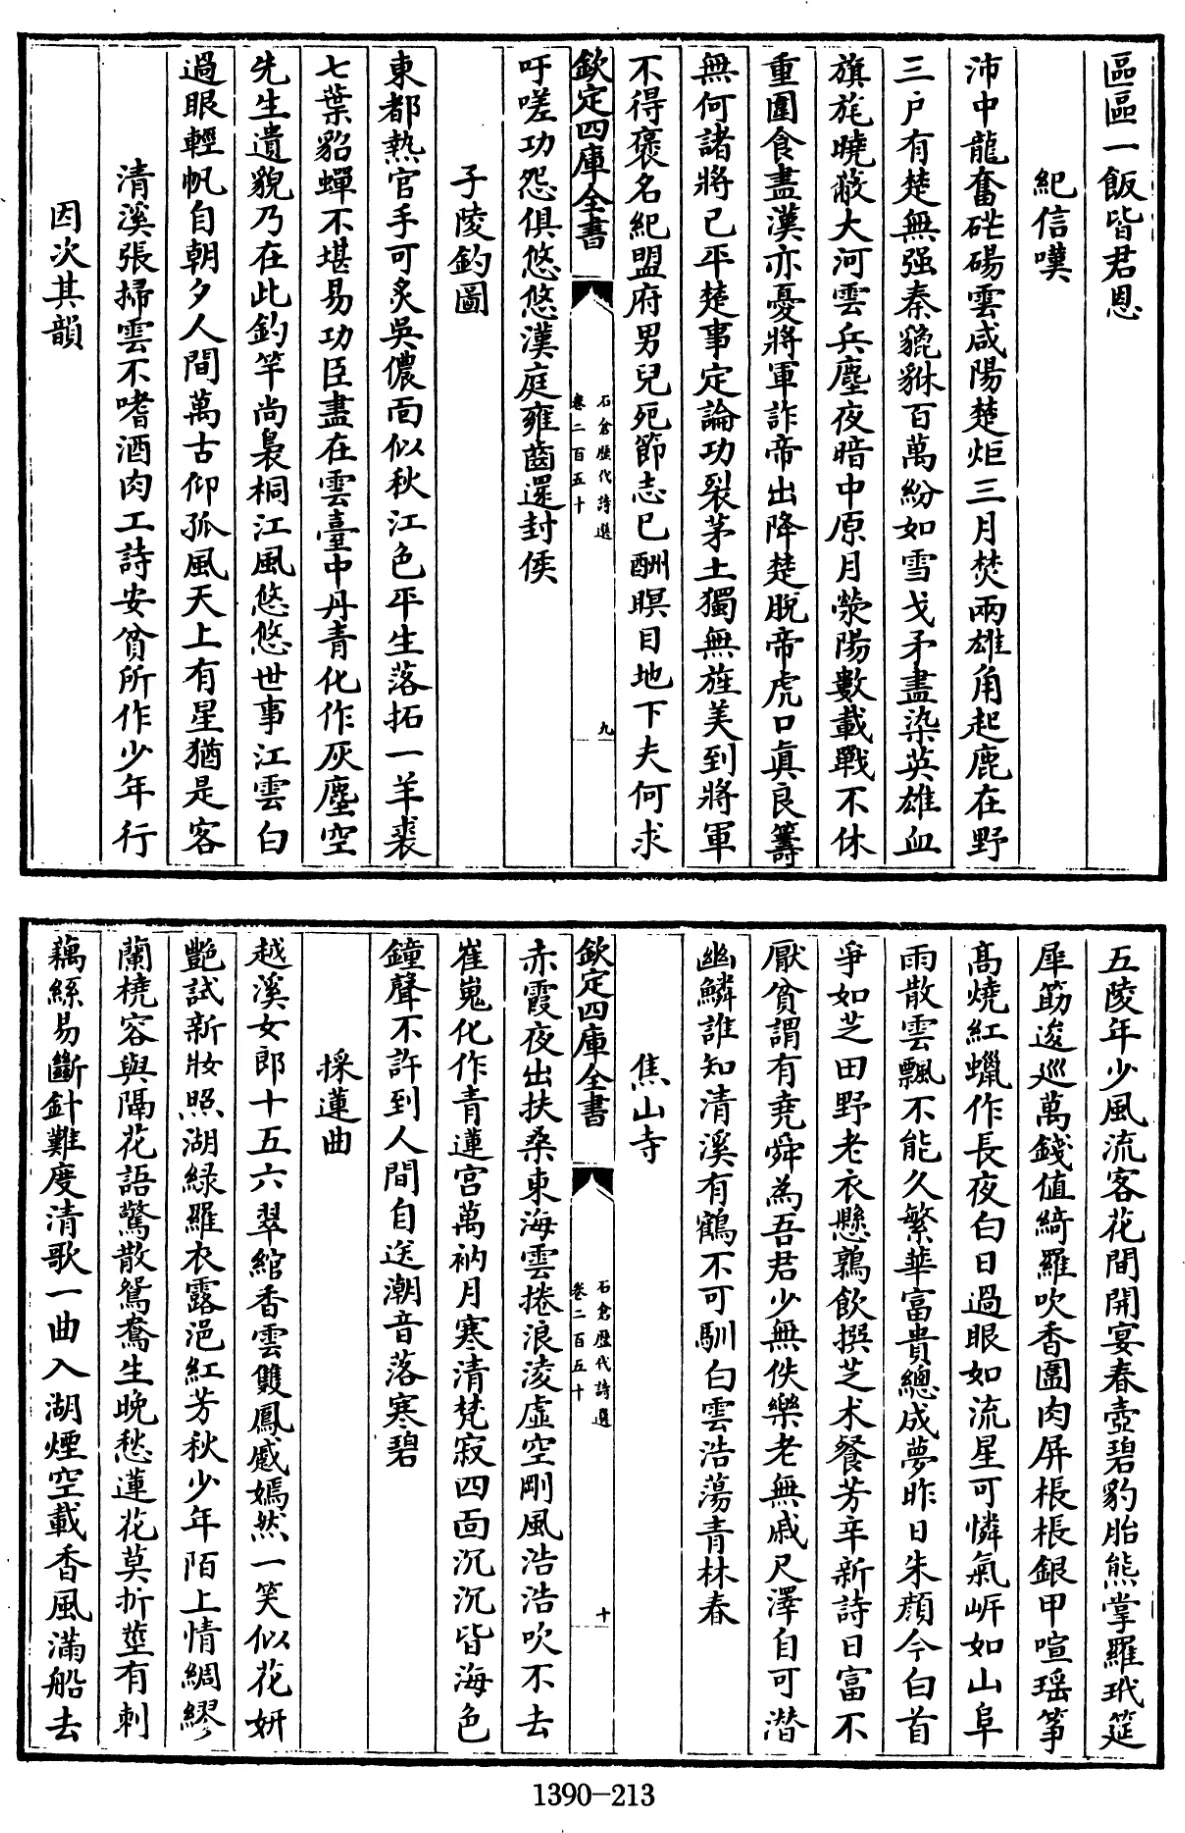 區區一飯皆君恩
紀信嘆
沛中龍奮硭碭雲咸陽楚炬三月焚兩雄角起鹿在野
三户有楚無强秦貔貅百萬紛如雪戈矛盡染英雄血
旗旄曉蔽大河雲兵塵夜暗中原月滎陽數載戰不休
重圍食盡漢亦憂將軍詐帝出降楚脫帝虎口真良籌
無何諸將已平楚事定論功裂茅土獨無旌美到將軍
不得褒名紀盟府男兒死節志已酬瞑目地下夫何求
欽定四庫全書
石倉歷代詩選
卷二百五十
九
吁嗟功怨俱悠悠漢庭雍齒還封侯
子陵釣圖
東都熱官手可炙吳儂面似秋江色平生落拓一羊裘
七葉貂蟬不堪易功臣盡在雲臺中丹青化作灰塵空
先生遺貌乃在此釣竿尚裊桐江風悠悠世事江雲白
過眼輕帆自朝夕人間萬古仰孤風天上有星猶是客
清溪張掃雲不嗜酒肉工詩安貧所作少年行
因次其韻
五陵年少風流客花間開宴春壺碧豹胎熊掌羅玳筵
犀筯逡巡萬錢值綺羅吹香圍肉屏棖棖銀甲喧瑤箏
髙燒紅蠟作長夜白日過眼如流星可憐氣㟁如山阜
雨散雲飄不能久繁華富貴總成夢昨日朱顔今白首
爭如芝田野老衣懸鶉飲撰芝术餐芳辛新詩日富不
厭貧謂有堯舜為吾君少無佚樂老無戚尺澤自可潛
幽鱗誰知清溪有鶴不可馴白雲浩蕩青林春
焦山寺
欽定四庫全書
石倉歷代詩選
卷二百五十
十
赤霞夜出扶桑東海雲捲浪淩虛空剛風浩浩吹不去
崔嵬化作青蓮宫萬衲月寒清梵寂四面沉沉皆海色
鐘聲不許到人間自送潮音落寒碧
採蓮曲
越溪女郎十五六翠綰香雲雙鳳蹙嫣然一笑似花妍
艷試新妝照湖緑羅衣露浥紅芳秋少年陌上情綢繆
蘭橈容與隔花語驚散鴛鴦生晚愁蓮花莫折莖有刺
藕絲易斷針難度清歌一曲入湖煙空載香風滿船去
1390-213